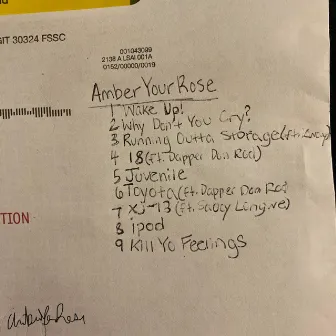 GIT 30324 FSSC
001043099
2138 A LSAI 001A
0152/00000/0019
Amber Your Rose
1 Wake Up!
2 Why Don't You Cry?
3 Running Outta Storage(ft.
4 18(ft. Dapper Don Roci)
5 Juvenile
6 Toyota(ft. Dapper Don Roci
7 XJ-13(ft. Saucy
8 ipod
9 Kill Yo Feelings
TION